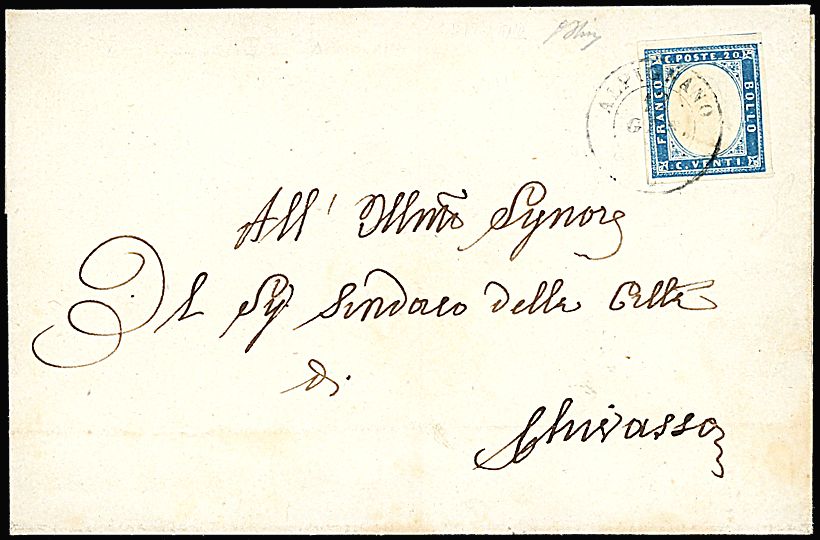 C. POSTE. 20.
FRANCO
BOLLO
C. VENTI.
ALPI ANO
G
All' Illmo Sygnore
Il Sy Sindaco della Città
di
Chivasso